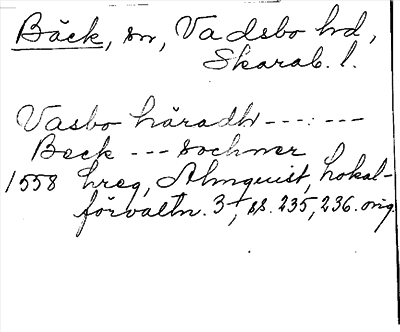 Bäck, sn, Vadsbo hd,
Skarab. l.
Vasbo häradh - - - : - - -
Beck - - - sochner
1558 hreg, Almquist, Lokal-
förvaltn. 3, ss. 235, 236. orig.